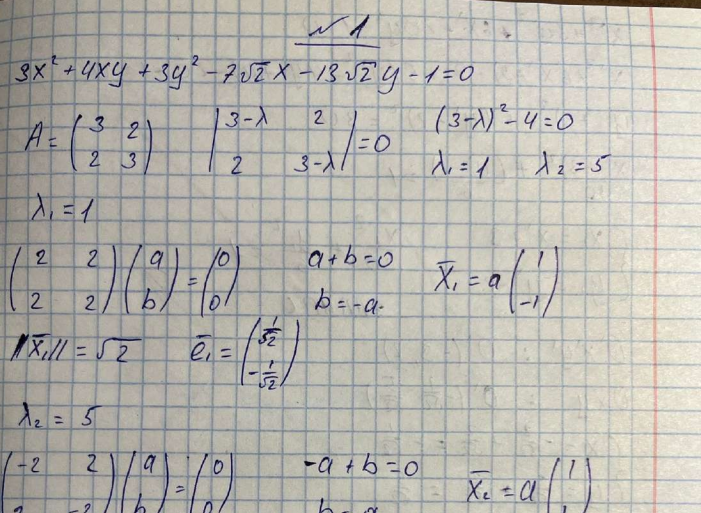 № 1
3x² + 4xy + 3y² - 7√2 x - 13√2 y - 1 = 0
A = (3 2; 2 3) |3-λ 2; 2 3-λ| = 0 (3-λ)² - 4 = 0
λ₁ = 1 λ₂ = 5
λ₁ = 1
(2 2; 2 2)(a; b) = (0; 0) a + b = 0 b = -a. x̄₁ = a(1; -1)
||x̄₁|| = √2 ē₁ = (1/√2; -1/√2)
λ₂ = 5
(-2 2; 2 -2)(a; b) = (0; 0) -a + b = 0 b = a x̄₂ = a(1